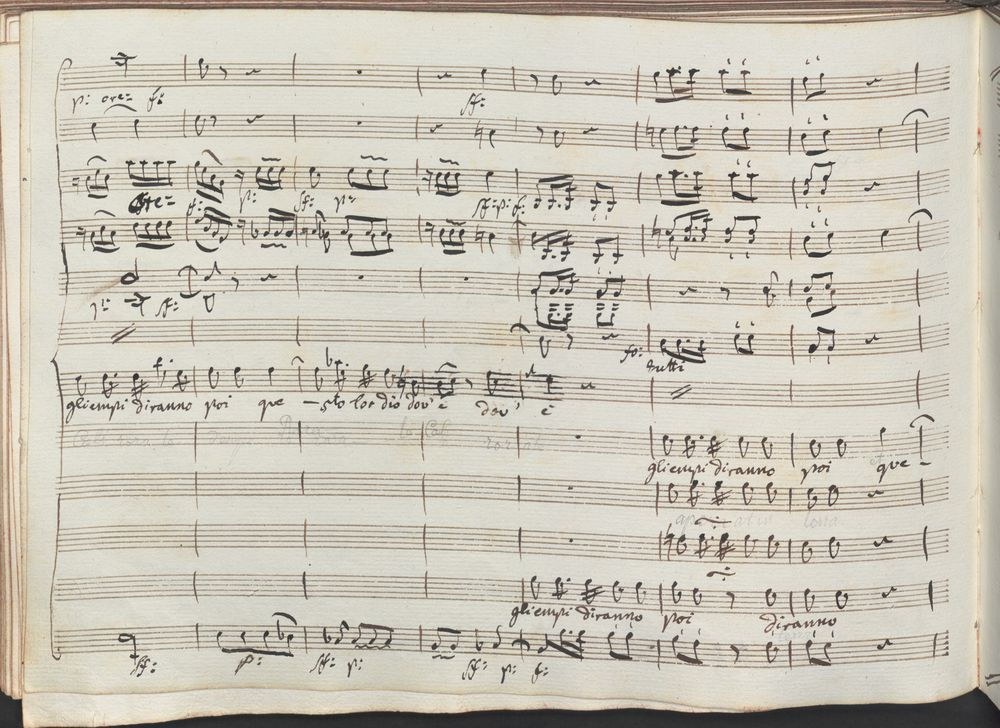 p: cre= f:
ff:
cre= f: p: ff: p: ff: p: f:
p: ff:
fo:
tutti
gli empi diranno poi que — sto lor dio dov' è dov' è
gli empi diranno poi que-
gli empi diranno poi diranno
ff: p: ff: p: ff: p: f: